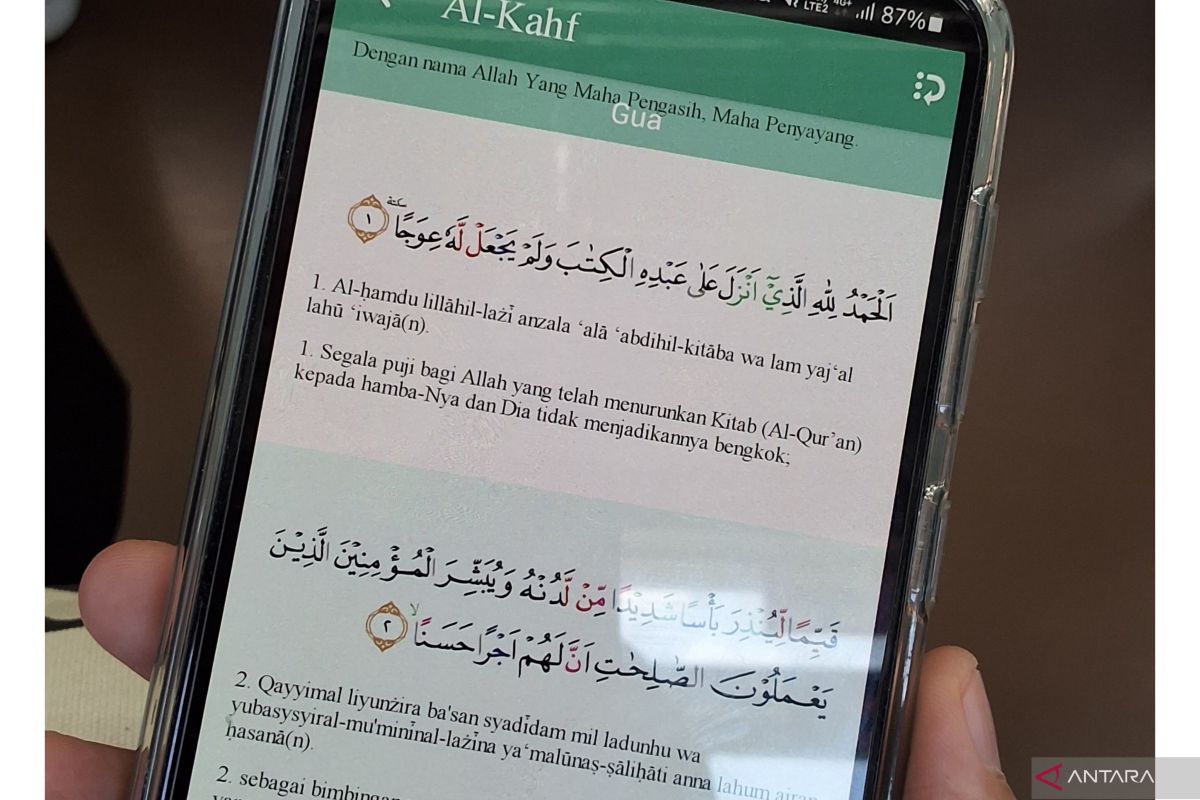 LTE2 4G+ 87%
Al-Kahf
Dengan nama Allah Yang Maha Pengasih, Maha Penyayang.
Gua
اَلْحَمْدُ لِلّٰهِ الَّذِيْٓ اَنْزَلَ عَلٰى عَبْدِهِ الْكِتٰبَ وَلَمْ يَجْعَلْ لَّهٗ عِوَجًا ۜ ١
1. Al-ḥamdu lillāhil-lażī anzala ‘alā ‘abdihil-kitāba wa lam yaj‘al
lahū ‘iwajā(n).
1. Segala puji bagi Allah yang telah menurunkan Kitab (Al-Qur’an)
kepada hamba-Nya dan Dia tidak menjadikannya bengkok;
قَيِّمًا لِّيُنْذِرَ بَأْسًا شَدِيْدًا مِّنْ لَّدُنْهُ وَيُبَشِّرَ الْمُؤْمِنِيْنَ الَّذِيْنَ
يَعْمَلُوْنَ الصّٰلِحٰتِ اَنَّ لَهُمْ اَجْرًا حَسَنًا ۙ ٢
2. Qayyimal liyunżira ba'san syadīdam mil ladunhu wa
yubasysyiral-mu'minīnal-lażīna ya‘malūnaṣ-ṣāliḥāti anna lahum ajran
ḥasanā(n).
2. sebagai bimbingan
ANTARA